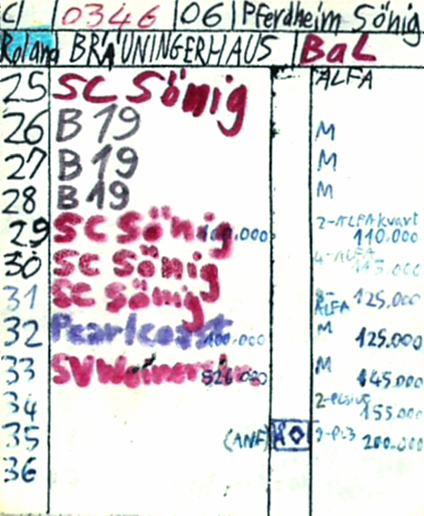 C/ 0346 06 Pferdheim Sönig
Roland BRÄUNINGERHAUS BaL
25 SC Sönig ALFA
26 B 19 M
27 B 19 M
28 B 19 M
29 SC Sönig 100.000 2-ALFAkvart 110.000
30 SC Sönig 4-ALFA 115.000
31 SC Sönig ALFA 125.000
32 Pearlcoast 100.000 M 125.000
33 SV 526.000 M 145.000
34 155.000
35 (ANF) 200.000
36